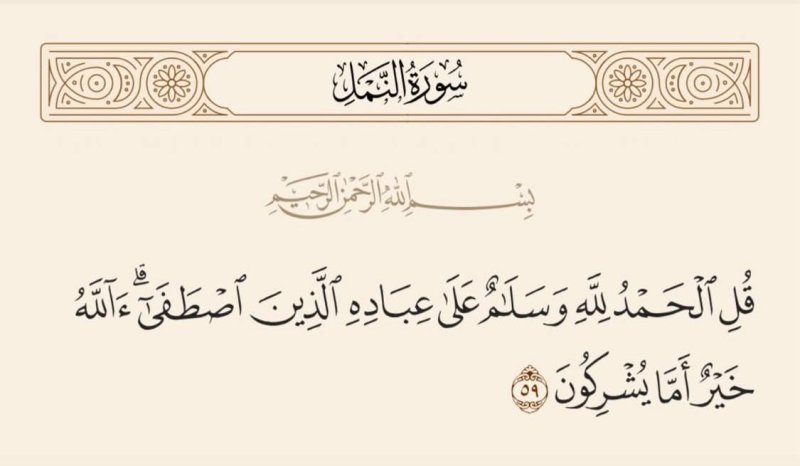 سُورَةُ النَّمۡلِ
بِسۡمِ ٱللَّهِ ٱلرَّحۡمَٰنِ ٱلرَّحِيمِ
قُلِ ٱلۡحَمۡدُ لِلَّهِ وَسَلَٰمٌ عَلَىٰ عِبَادِهِ ٱلَّذِينَ ٱصۡطَفَىٰٓۗ ءَآللَّهُ
خَيۡرٌ أَمَّا يُشۡرِكُونَ ٥٩